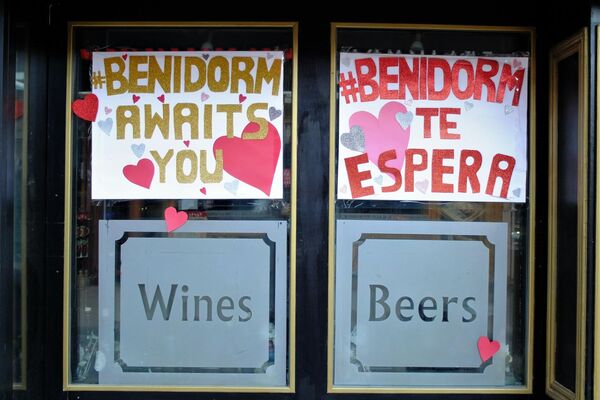 #BENIDORM
AWAITS
YOU
#BENIDORM
TE
ESPERA
Wines
Beers